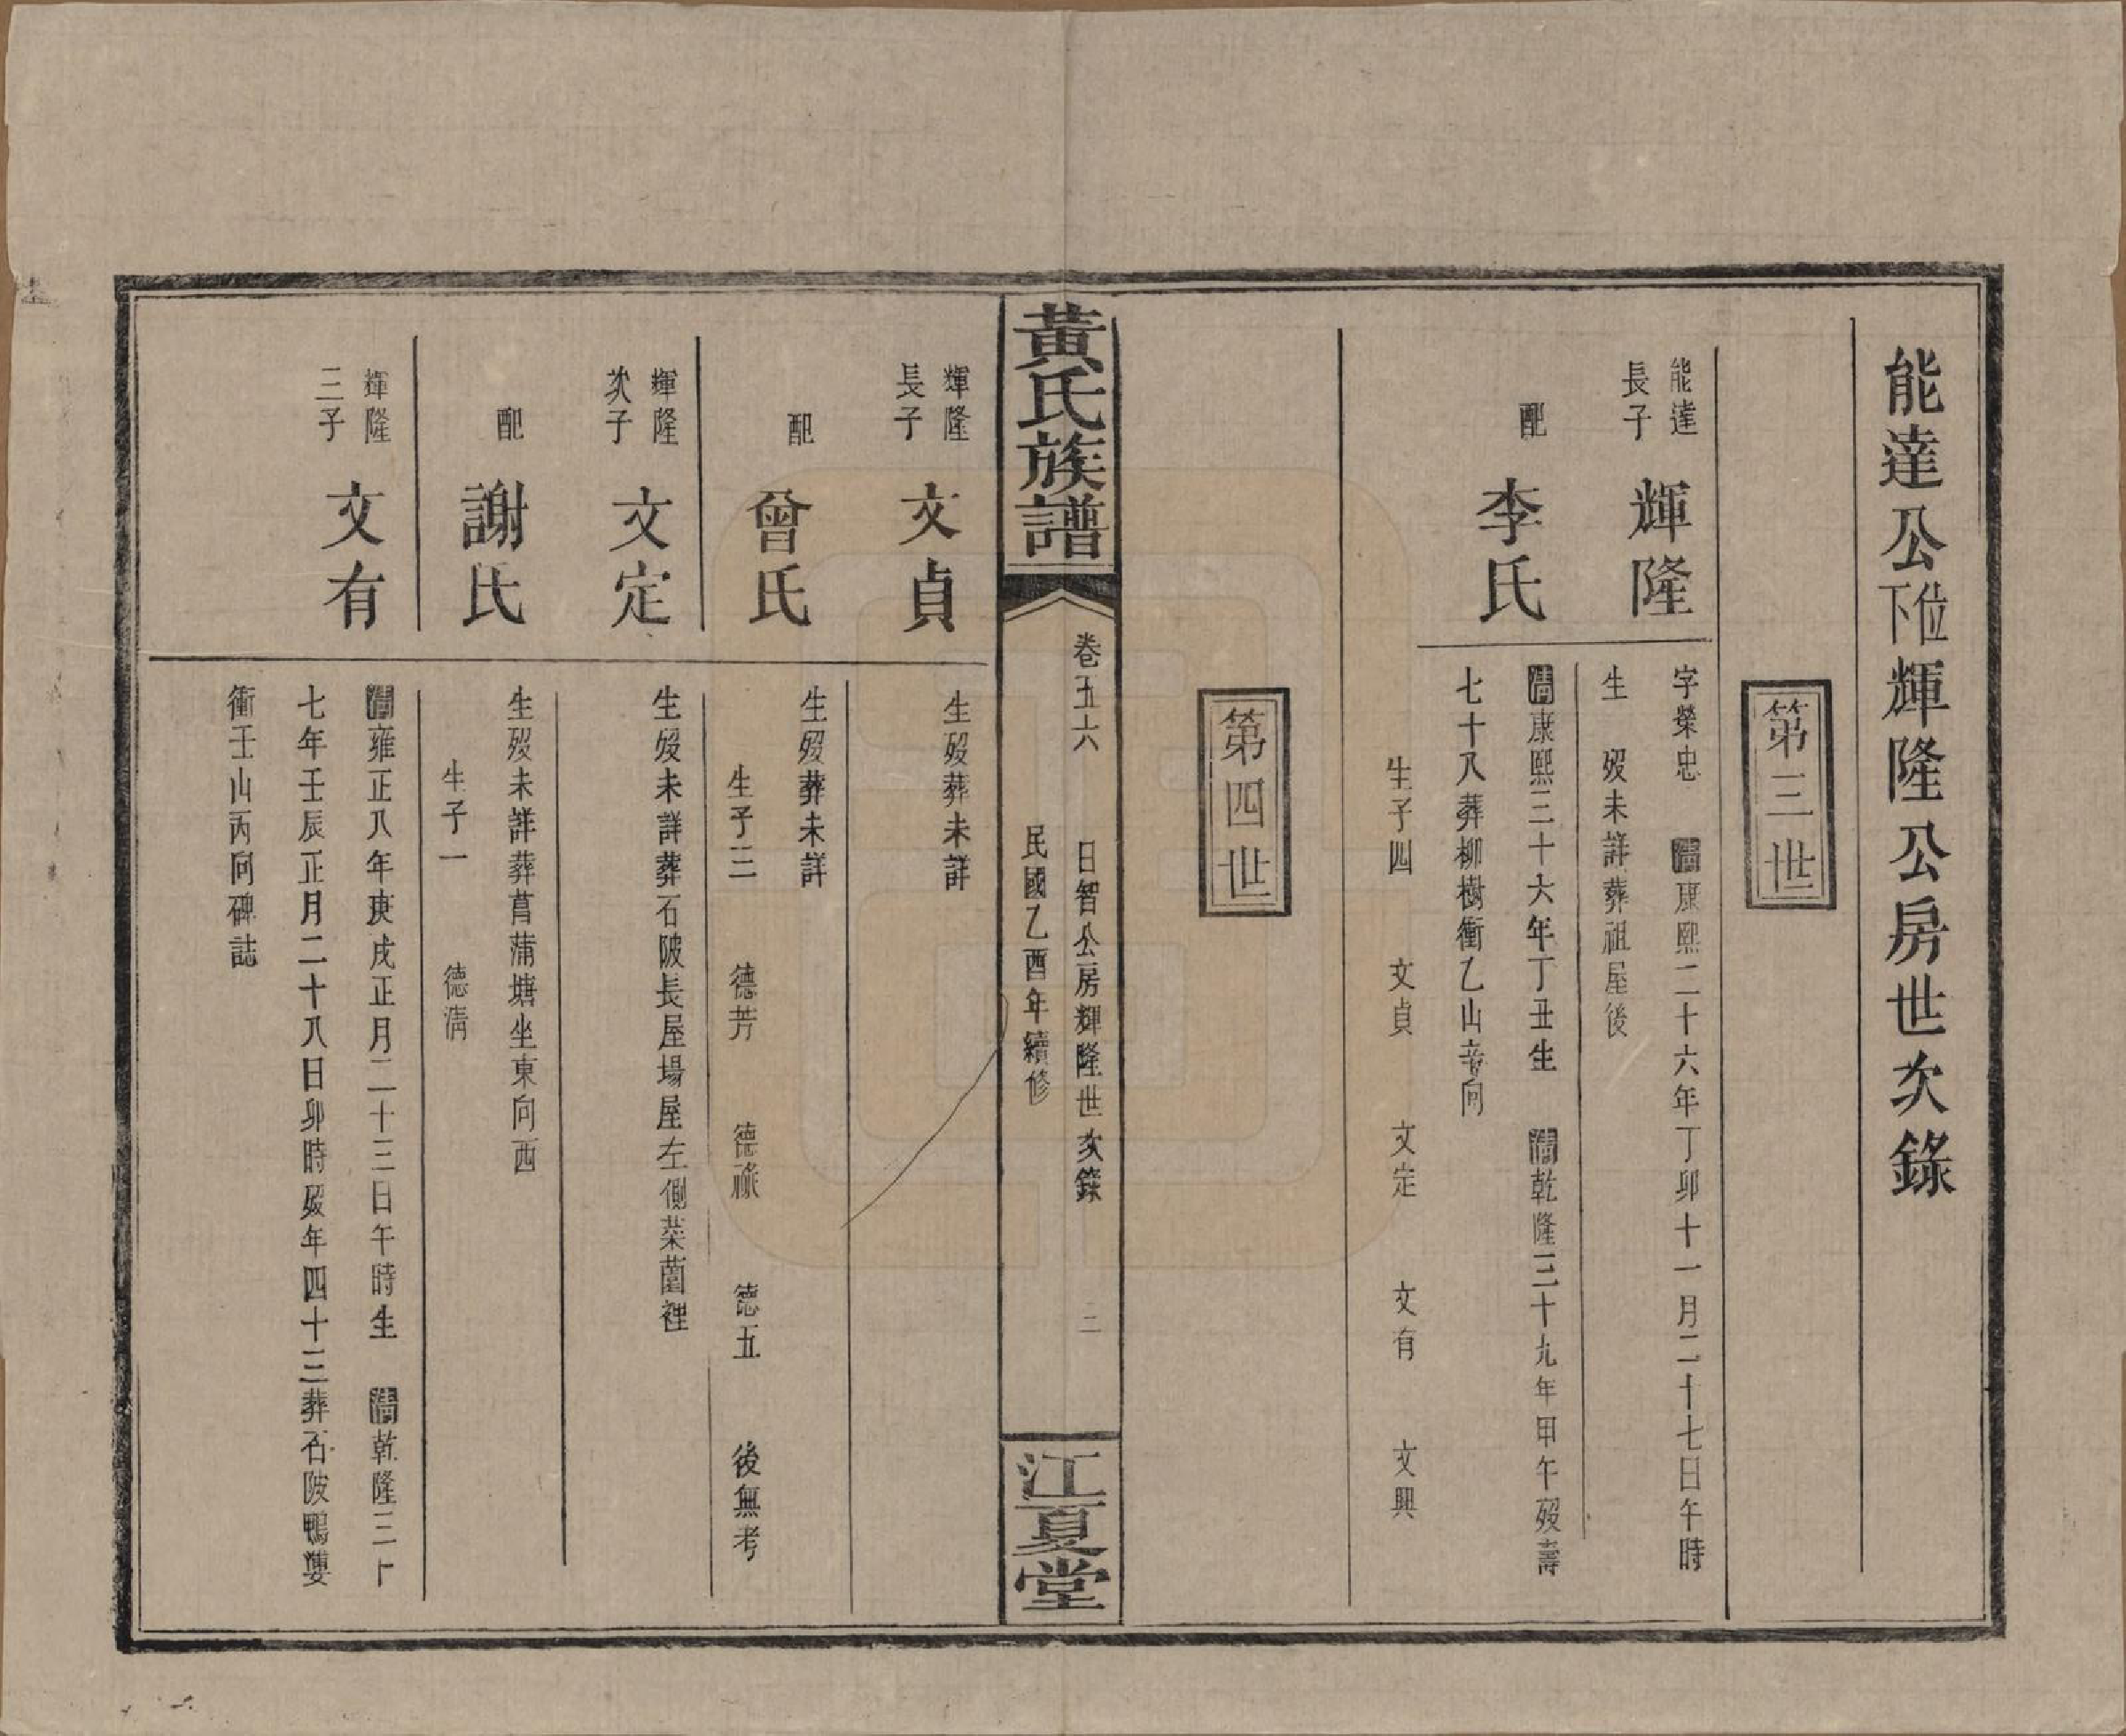 能達公位下輝隆公房世次錄
第三世
能達長子
輝隆
字榮忠 清康熙二十六年丁卯十一月二十七日午時
生 歿未詳葬祖屋後
配
李氏
清康熙三十六年丁丑生 清乾隆三十九年甲午歿壽
七十八葬柳樹衝乙山辛向
生子四 文貞 文定 文有 文興
第四世
黃氏族譜
卷五六 日智公房輝隆世次錄 二
民國乙酉年續修
江夏堂
輝隆長子
文貞
生歿葬未詳
配
曾氏
生歿葬未詳
生子三 德芳 德祿 德五 後無考
輝隆次子
文定
生歿未詳葬石陂長屋場屋左側菜薗裡
配
謝氏
生歿未詳葬菖蒲塘坐東向西
生子一 德清
輝隆三子
文有
清雍正八年庚戌正月二十三日午時生 清乾隆三十
七年壬辰正月二十八日卯時歿年四十三葬石陂鴨婆
衝壬山丙向碑誌